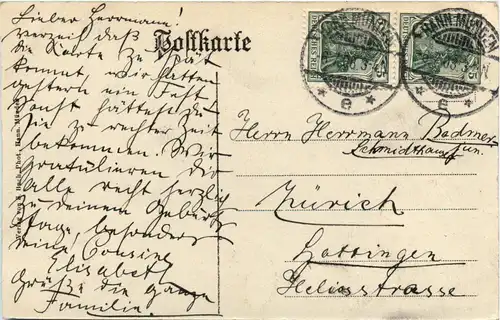 Lieber Herrmann!
Verzeih daß
die Karte zu spät
kommt, wir hatten
gestern ein Fest
sonst hättest du
sie zu rechter Zeit
bekommen. Wir
gratulieren dir
alle recht herzlich
zu deinem Geburts
tage, besonders
deine Cousine
Elisabeth
Grüße die ganze
Familie.
Postkarte
HANN. MÜNDEN
HANN. MÜNDEN
DEUTSCHES REICH
5
5
* e *
* e *
Herrn Herrmann Bodmer
Schmidthauf jun.
Zürich
Hottingen
Heliosstrasse